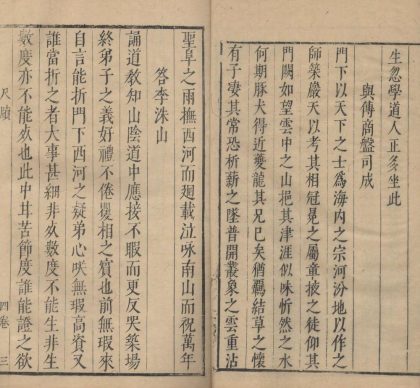 生忽學道人正多坐此
與傅商盤司成
門下以天下之士為海內之宗河汾地以作之
師築巖天以考其相冠冕之屬童披之徒仰其
門闕如望雲中之山挹其津涯似咏忻然之水
何期豚犬得近夔龍其兄已矣猶羈結草之懷
有子凄其常恐析薪之墜普開叢象之雲重沾
聖阜之雨撫西河而廻載泣咏南山而祝萬年
答李洙山
誦道教知山陰道中應接不暇而更反哭築場
終弟子之義好禮不倦瞿相之賓也前無瑕來
自言能折門下西河之疑弟心咲無瑕高資又
誰當折之者大事甚細非欬數度不能生非生
數度亦不能欬也此中甘苦節度誰能證之欲
尺牘
四卷
三